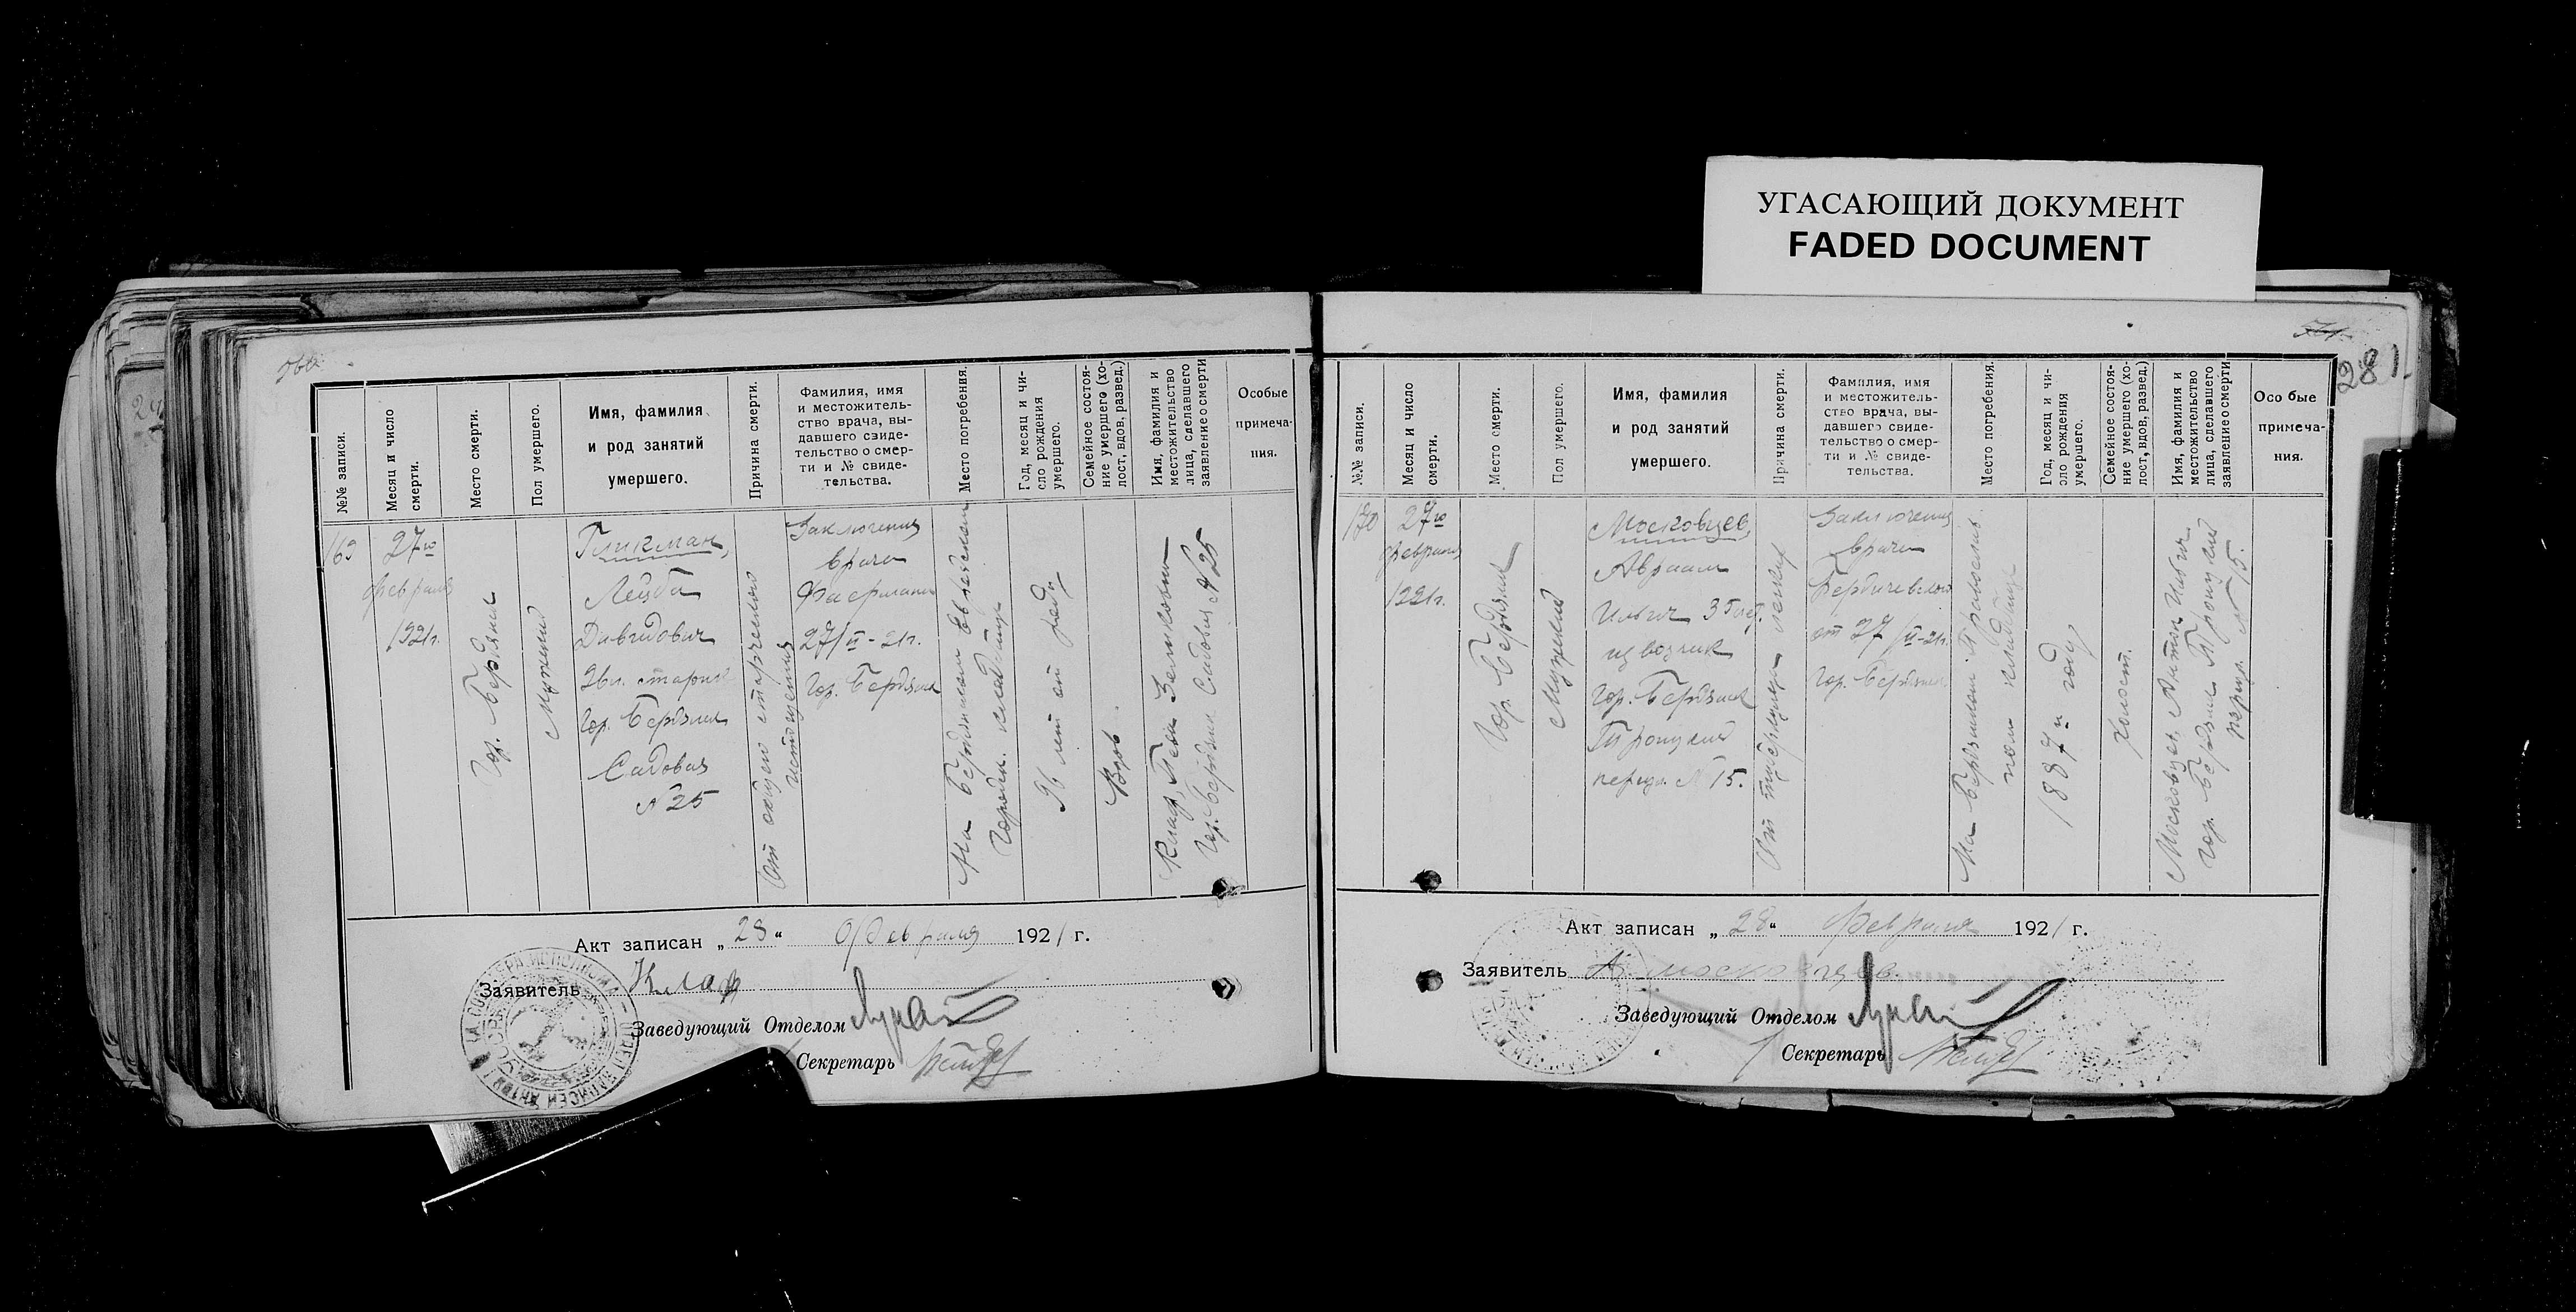 УГАСАЮЩИЙ ДОКУМЕНТ
FADED DOCUMENT
№№ записи.
Месяц и число
смерти.
Место смерти.
Пол умершего.
Имя, фамилия
и род занятий
умершего.
Причина смерти.
Фамилия, имя
и местожитель-
ство врача, вы-
давшего свиде-
тельство о смер-
ти и № свиде-
тельства.
Место погребения.
Год, месяц и чи-
сло рождения
умершего.
Семейное состоя-
ние умершего (хо-
лост, вдов, развед.)
Имя, фамилия и
местожительство
лица, сделавшего
заявление о смерти
Особые
примеча-
ния.
169
27го
февраля
1921г.
Гор. Бердянск
Мужской
Гликман,
Лейба
Давидович
старик
Гор. Бердянск
Садовая
№ 25
От общего старческого
истощения
Заключения
врача
27/II-21г.
Гор. Бердянск
На Бердянском Еврейском
Городск. кладбище
96 лет от роду
Вдов.
Гор. Бердянск Садовая № 25
Акт записан „28“ Февраля 1921 г.
Заявитель
Заведующий Отделом
Секретарь
281
№№ записи.
Месяц и число
смерти.
Место смерти.
Пол умершего.
Имя, фамилия
и род занятий
умершего.
Причина смерти.
Фамилия, имя
и местожитель-
ство врача, вы-
давшего свиде-
тельство о смер-
ти и № свиде-
тельства.
Место погребения.
Год, месяц и чи-
сло рождения
умершего.
Семейное состоя-
ние умершего (хо-
лост, вдов, развед.)
Имя, фамилия и
местожительство
лица, сделавшего
заявление о смерти
Особые
примеча-
ния.
170
27го
февраля
1921г.
Гор. Бердянск
Мужской
Московцев,
Авраам
Ильич
извозчик
Гор. Бердянск
Троицкий
переул. № 15.
От туберкулеза легких
Заключения
врача
Бердичевского
от 27/II-21г.
Гор. Бердянск
На Бердянском Православ-
ном кладбище
1887 м году
Холост.
Московцев, Антон Ильич
гор. Бердянск Троицкий
переул. № 15.
Акт записан „28“ Февраля 1921 г.
Заявитель А. Московцев.
Заведующий Отделом
Секретарь